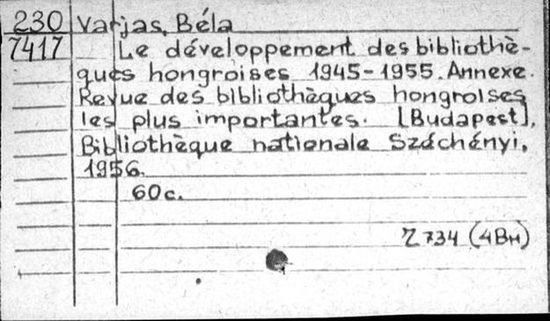 230 Varjas, Béla
7417 Le développement des bibliothè-
ques hongroises 1945-1955. Annexe.
Revue des bibliothèques hongroises
les plus importantes. [Budapest],
Bibliothèque nationale Széchényi,
1956.
60c.
734 (4Вн)